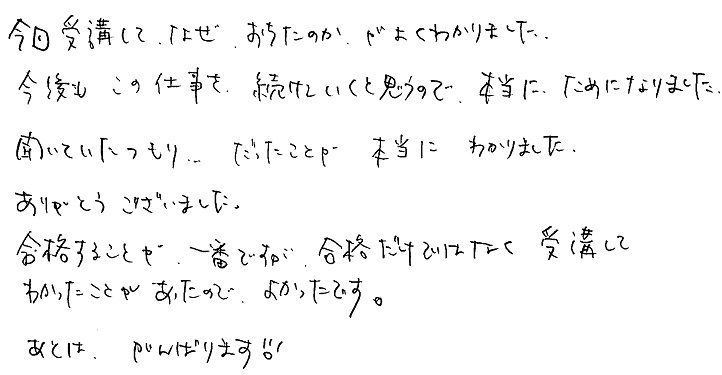 今回受講して、なぜ、おちたのか、がよくわかりました。
今後も この仕事を、続けていくと思うので、本当に、ためになりました。
聞いていたつもり… だったことが 本当に わかりました。
ありがとうございました。
合格することが、一番ですが、合格だけではなく 受講して
わかったことがあったので、よかったです。
あとは、がんばります!!